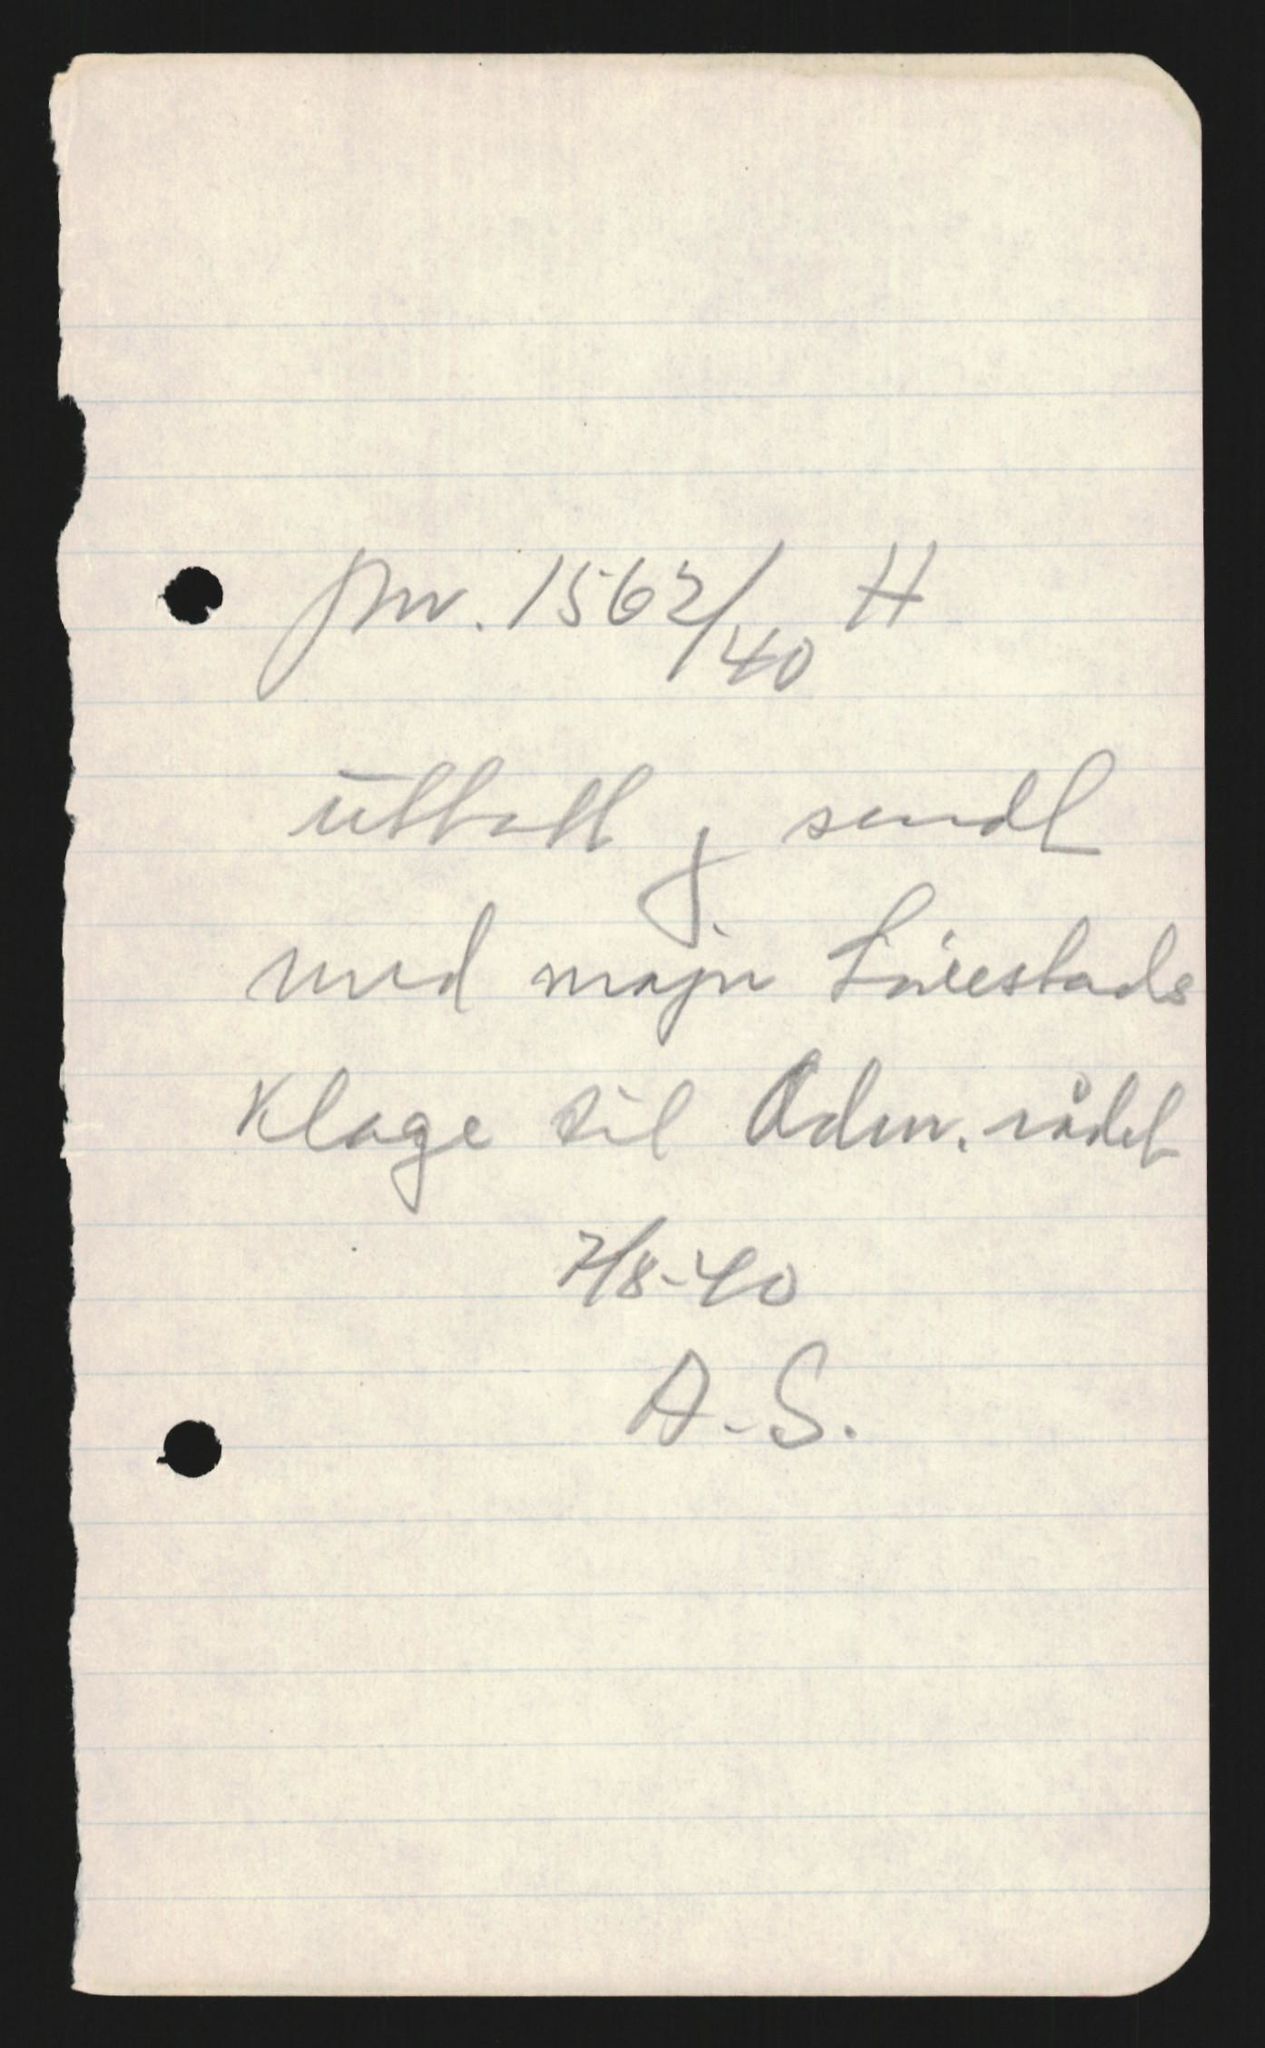 Jnr. 1562/40 H
uttatt & sendt
med major Lõvestads
Klage til Adm. rådet
7/8-40
A.S.